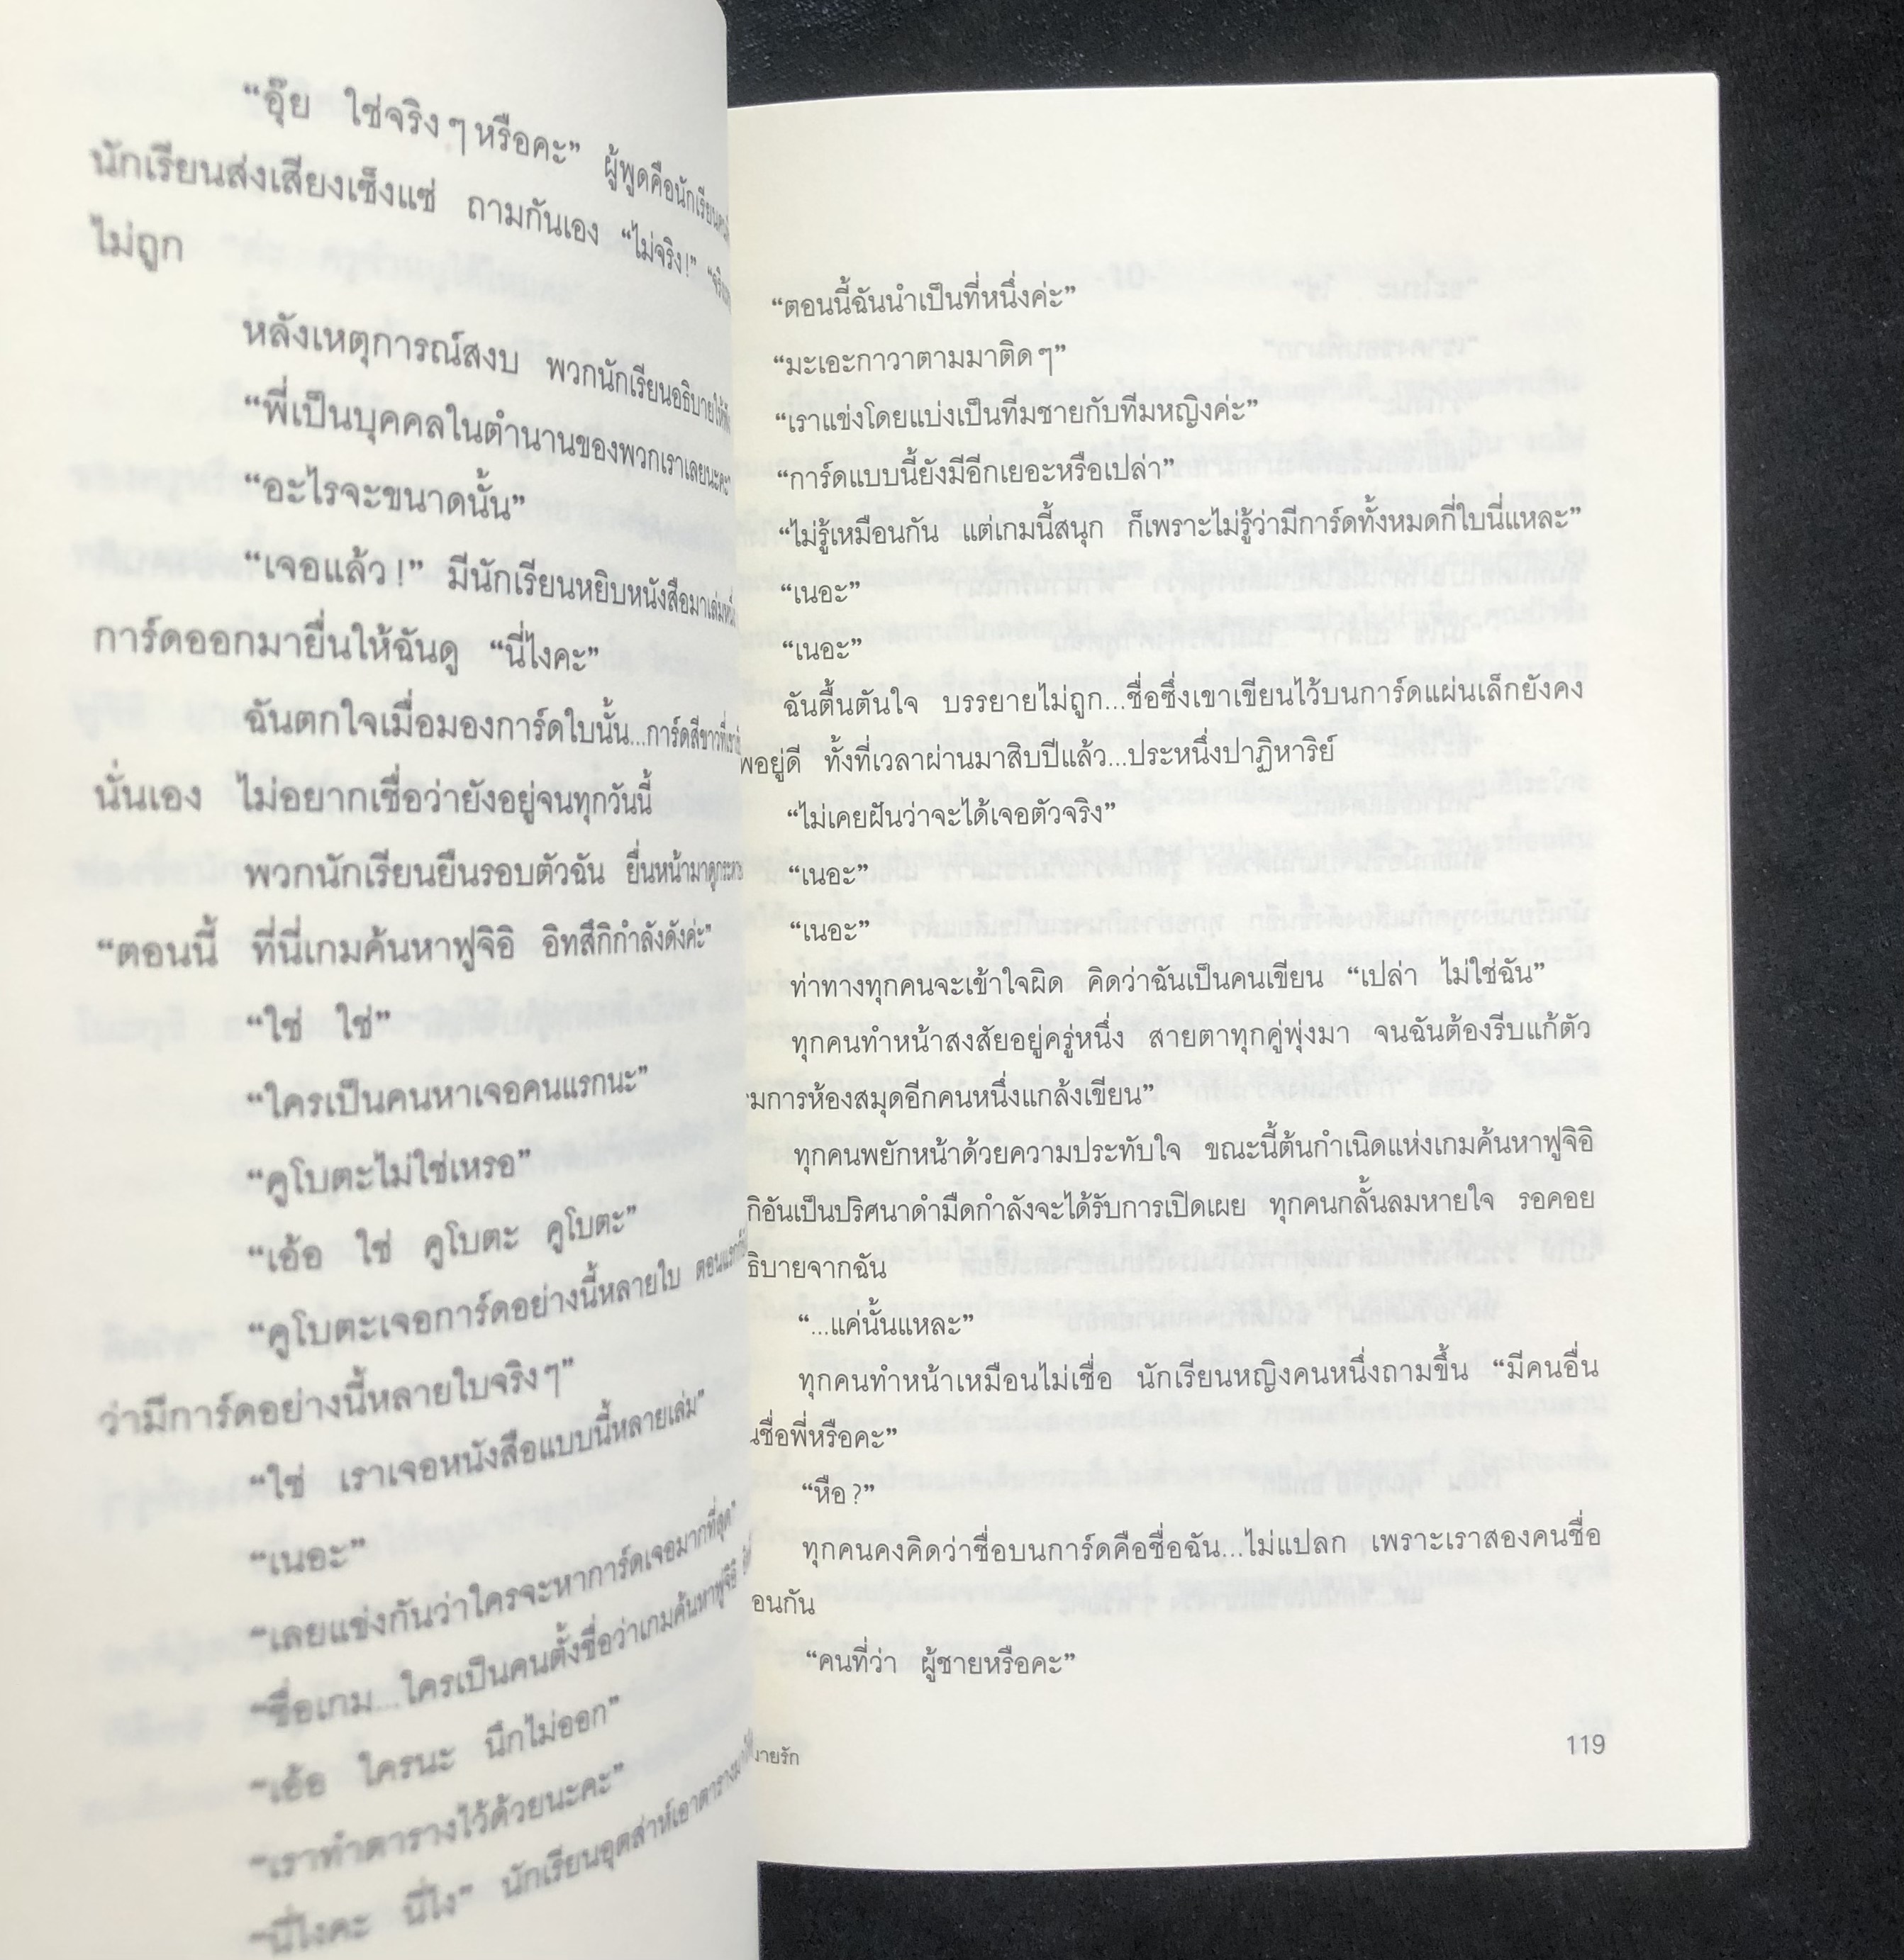 “อุ๊ย ใช่จริงๆหรือคะ” ผู้พูดคือนักเรียน
นักเรียนส่งเสียงเซ็งแซ่ ถามกันเอง “ไม่จริง!”
ไม่ถูก
หลังเหตุการณ์สงบ พวกนักเรียนอธิบายให้ฟัง
“พี่เป็นบุคคลในตำนานของพวกเราเลยนะคะ”
“อะไรจะขนาดนั้น”
“เจอแล้ว!” มีนักเรียนหยิบหนังสือมาเล่ม
การ์ดออกมายื่นให้ฉันดู “นี่ไงคะ”
ฉันตกใจเมื่อมองการ์ดใบนั้น...การ์ดสีขาวที่
นั่นเอง ไม่อยากเชื่อว่ายังอยู่จนทุกวันนี้
พวกนักเรียนยืนรอบตัวฉัน ยื่นหน้ามาดู
“ตอนนี้ ที่นี่เกมค้นหาฟูจิอิ อิทสึกิกำลังดังค่ะ”
“ใช่ ใช่”
“ใครเป็นคนหาเจอคนแรกนะ”
“คูโบตะไม่ใช่เหรอ”
“เอ้อ ใช่ คูโบตะ คูโบตะ”
“คูโบตะเจอการ์ดอย่างนี้หลายใบ ตอนแรก
ว่ามีการ์ดอย่างนี้หลายใบจริงๆ”
“ใช่ เราเจอหนังสือแบบนี้หลายเล่ม”
“เนอะ”
“เลยแข่งกันว่าใครจะหาการ์ดเจอมากที่สุด”
“ชื่อเกม...ใครเป็นคนตั้งชื่อว่าเกมค้นหาฟูจิอิ
“เอ้อ ใครนะ นึกไม่ออก”
“เราทำตารางไว้ด้วยนะคะ”
“นี่ไงคะ นี่ไง” นักเรียนอุตส่าห์เอาตารางมา
“ตอนนี้ฉันนำเป็นที่หนึ่งค่ะ”
“มะเอะกาวาตามมาติดๆ”
“เราแข่งโดยแบ่งเป็นทีมชายกับทีมหญิงค่ะ”
“การ์ดแบบนี้ยังมีอีกเยอะหรือเปล่า”
“ไม่รู้เหมือนกัน แต่เกมนี้สนุก ก็เพราะไม่รู้ว่ามีการ์ดทั้งหมดกี่ใบนี่แหละ”
“เนอะ”
“เนอะ”
ฉันตื้นตันใจ บรรยายไม่ถูก...ชื่อซึ่งเขาเขียนไว้บนการ์ดแผ่นเล็กยังคง
พอยู่ดี ทั้งที่เวลาผ่านมาสิบปีแล้ว...ประหนึ่งปาฏิหาริย์
“ไม่เคยฝันว่าจะได้เจอตัวจริง”
“เนอะ”
“เนอะ”
ท่าทางทุกคนจะเข้าใจผิด คิดว่าฉันเป็นคนเขียน “เปล่า ไม่ใช่ฉัน”
ทุกคนทำหน้าสงสัยอยู่ครู่หนึ่ง สายตาทุกคู่พุ่งมา จนฉันต้องรีบแก้ตัว
มการห้องสมุดอีกคนหนึ่งแกล้งเขียน”
ทุกคนพยักหน้าด้วยความประทับใจ ขณะนี้ต้นกำเนิดแห่งเกมค้นหาฟูจิอิ
กิอันเป็นปริศนาดำมืดกำลังจะได้รับการเปิดเผย ทุกคนกลั้นลมหายใจ รอคอย
ธิบายจากฉัน
“...แค่นั้นแหละ”
ทุกคนทำหน้าเหมือนไม่เชื่อ นักเรียนหญิงคนหนึ่งถามขึ้น “มีคนอื่น
ชื่อพี่หรือคะ”
“หือ?”
ทุกคนคงคิดว่าชื่อบนการ์ดคือชื่อฉัน...ไม่แปลก เพราะเราสองคนชื่อ
อนกัน
“คนที่ว่า ผู้ชายหรือคะ”
มายรัก 119